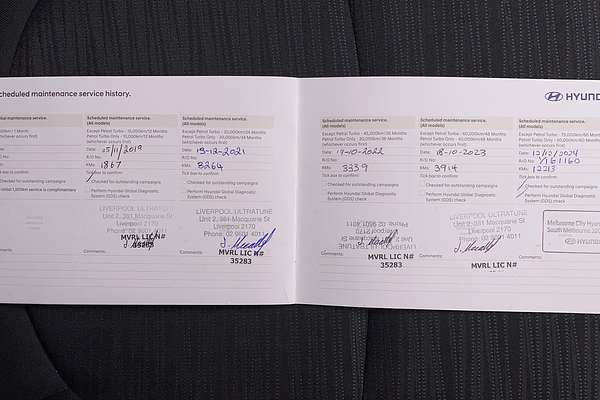 cheduled maintenance service history.
HYUN
Scheduled maintenance service.
(All models)
Except Petrol Turbo - 15,000km/12 Months
Petrol Turbo Only - 10,000km/12 Months
(whichever occurs first)
Date: 15/11/2019
R/O No:
KMs: 1867
Tick box to confirm
Checked for outstanding campaigns
1,500km service is complimentary
Perform Hyundai Global Diagnostic
System (GDS) check
LIVERPOOL ULTRATUNE
Unit 2, 361 Macquarie St
Liverpool 2170
Phone: 02 9601 4011
MVRL LIC N#
35283
Comments:
Scheduled maintenance service.
(All models)
Except Petrol Turbo - 30,000km/24 Months
Petrol Turbo Only - 20,000km/24 Months
(whichever occurs first)
Date: 13-12-2021
R/O No:
KMs: 8264
Tick box to confirm
Checked for outstanding campaigns
Perform Hyundai Global Diagnostic
System (GDS) check
LIVERPOOL ULTRATUNE
Liverpool 2170
Phone: 02 9601 4011
MVRL LIC N#
35283
Comments:
Scheduled maintenance service.
(All models)
Except Petrol Turbo - 45,000km/36 Months
Petrol Turbo Only - 30,000km/36 Months
(whichever occurs first)
Date: 17-10-2022
R/O No:
KMs: 3339
Tick box to confirm
Checked for outstanding campaigns
Perform Hyundai Global Diagnostic
System (GDS) check
MVRL LIC N#
35283
Comments:
Scheduled maintenance service.
(All models)
Except Petrol Turbo - 60,000km/48 Months
Petrol Turbo Only - 40,000km/48 Months
(whichever occurs first)
Date: 18-10-2023
R/O No:
KMs: 3914
Tick box to confirm
Checked for outstanding campaigns
Perform Hyundai Global Diagnostic
System (GDS) check
LIVERPOOL ULTRATUNE
Liverpool 2170
MVRL LIC N#
35283
Comments:
Scheduled maintenance service.
(All models)
Except Petrol Turbo - 75,000km
Petrol Turbo Only - 50,000km
(whichever occurs first)
Date: 12/12/2024
R/O No: 161160
KMs: 12213
Tick box to confirm
Checked for outstanding
Perform Hyundai Global
System (GDS) check
Melbourne City Hyund
South Melbourne 320
HYUND
Comments: